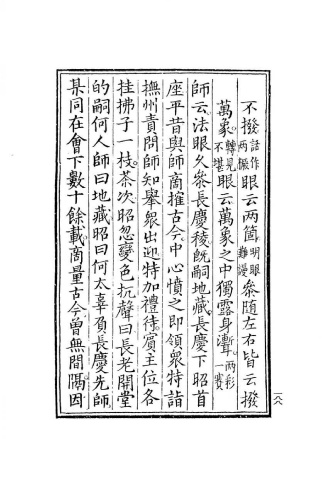 不撥話作兩橛眼云兩箇明眼難謾參隨左右皆云撥
萬象轉見不堪眼云萬象之中獨露身漸兩彩一賽
師云法眼久參長慶稜旣嗣地藏長慶下昭首
座平昔與師商搉古今中心憤之即領衆特詣
撫州責問師知舉衆出迎特加禮待賓主位各
挂拂子一枝茶次昭忽變色抗聲曰長老開堂
的嗣何人師曰地藏昭曰何太辜負長慶先師
某同在會下數十餘載商量古今曾無間隔因